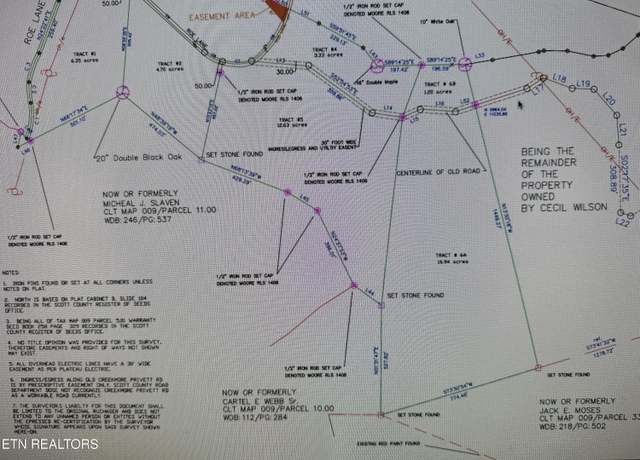 EASEMENT AREA
ROE LANE
1/2" IRON ROD SET CAP
DENOTED MOORE RLS 1408
10" White Oak
TRACT #1
6.35 acres
TRACT #2
4.76 acres
ROE LANE
TRACT #4
3.33 acres
L43
S89°14'25"E
197.42'
S89°14'25"E
196.59'
L33
OH/E
L18
L19
L20
L17
50.00'
30.00'
L13
Double Maple
TRACT # 6B
1.20 acres
1/2" IRON ROD SET CAP
DENOTED MOORE RLS 1408
L14
L15
L16
TRACT #5
12.63 acres
30' FOOT WIDE
INGRESS/EGRESS AND UTILITY EASEMENT
L21
L22
S02°37'35"E
508.89'
20" Double Black Oak
SET STONE FOUND
CENTERLINE OF OLD ROAD
BEING THE
REMAINDER
OF THE
PROPERTY
OWNED
BY CECIL WILSON
OH/E
1/2" IRON ROD SET CAP
DENOTED MOORE RLS 1408
NOW OR FORMERLY
MICHEAL J. SLAVEN
CLT MAP 009/PARCEL 11.00
WDB: 246/PG: 537
L45
1/2" IRON ROD SET CAP
DENOTED MOORE RLS 1408
TRACT # 6A
15.94 acres
1/2" IRON ROD SET CAP
DENOTED MOORE RLS 1408
L44
SET STONE FOUND
NOTES:
1. IRON PINS FOUND OR SET AT ALL CORNERS UNLESS
NOTED ON PLAT.
2. NORTH IS BASED ON PLAT CABINET B, SLIDE 184
RECORDED IN THE SCOTT COUNTY REGISTER OF DEEDS
OFFICE.
3. BEING ALL OF TAX MAP 009 PARCEL 5.01 WARRANTY
DEED BOOK 258 PAGE 329 RECORDED IN THE SCOTT
COUNTY REGISTER OF DEEDS OFFICE.
4. NO TITLE OPINION WAS PROVIDED FOR THIS SURVEY,
THEREFORE EASEMENTS AND RIGHT OF WAYS NOT SHOWN
MAY EXIST.
5. ALL OVERHEAD ELECTRIC LINES HAVE A 30' WIDE
EASEMENT AS PER PLATEAU ELECTRIC.
6. INGRESS/EGRESS ALONG OLD CREEKMORE PRIVETT RD
IS BY PRESCRIPTIVE EASEMENT ONLY. SCOTT COUNTY ROAD
DEPARTMENT DOSE NOT RECOGNIZE CREEKMORE PRIVETT RD
AS A WORKABLE ROAD CURRENTLY.
7. THE SURVEYOR'S LIABILITY FOR THIS DOCUMENT SHALL
BE LIMITED TO THE ORIGINAL PURCHASER AND DOES NOT
EXTEND TO ANY UNNAMED PERSON OR ENTITIES WITHOUT
THE EXPRESSED RE-CERTIFICATION BY THE SURVEYOR
WHOSE SIGNATURE APPEARS UPON SAID SURVEY SHOWN
HERE-ON.
1/2" IRON ROD SET CAP
DENOTED MOORE RLS 1408
SET STONE FOUND
NOW OR FORMERLY
CARTEL E WEBB Sr.
CLT MAP 009/PARCEL 10.00
WDB: 112/PG: 284
SET STONE FOUND
NOW OR FORMERLY
JACK E. MOSES
CLT MAP 009/PARCEL 33
WDB: 218/PG: 502
EXISTING RED PAINT FOUND
ETN REALTORS